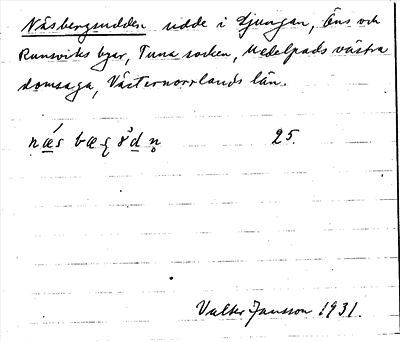 Näsbergsudden udde i Ljungan, Öns och
Runsviks byar, Tuna socken, Medelpads västra
domsaga, Västernorrlands län.
25.
Valter Jansson 1931.